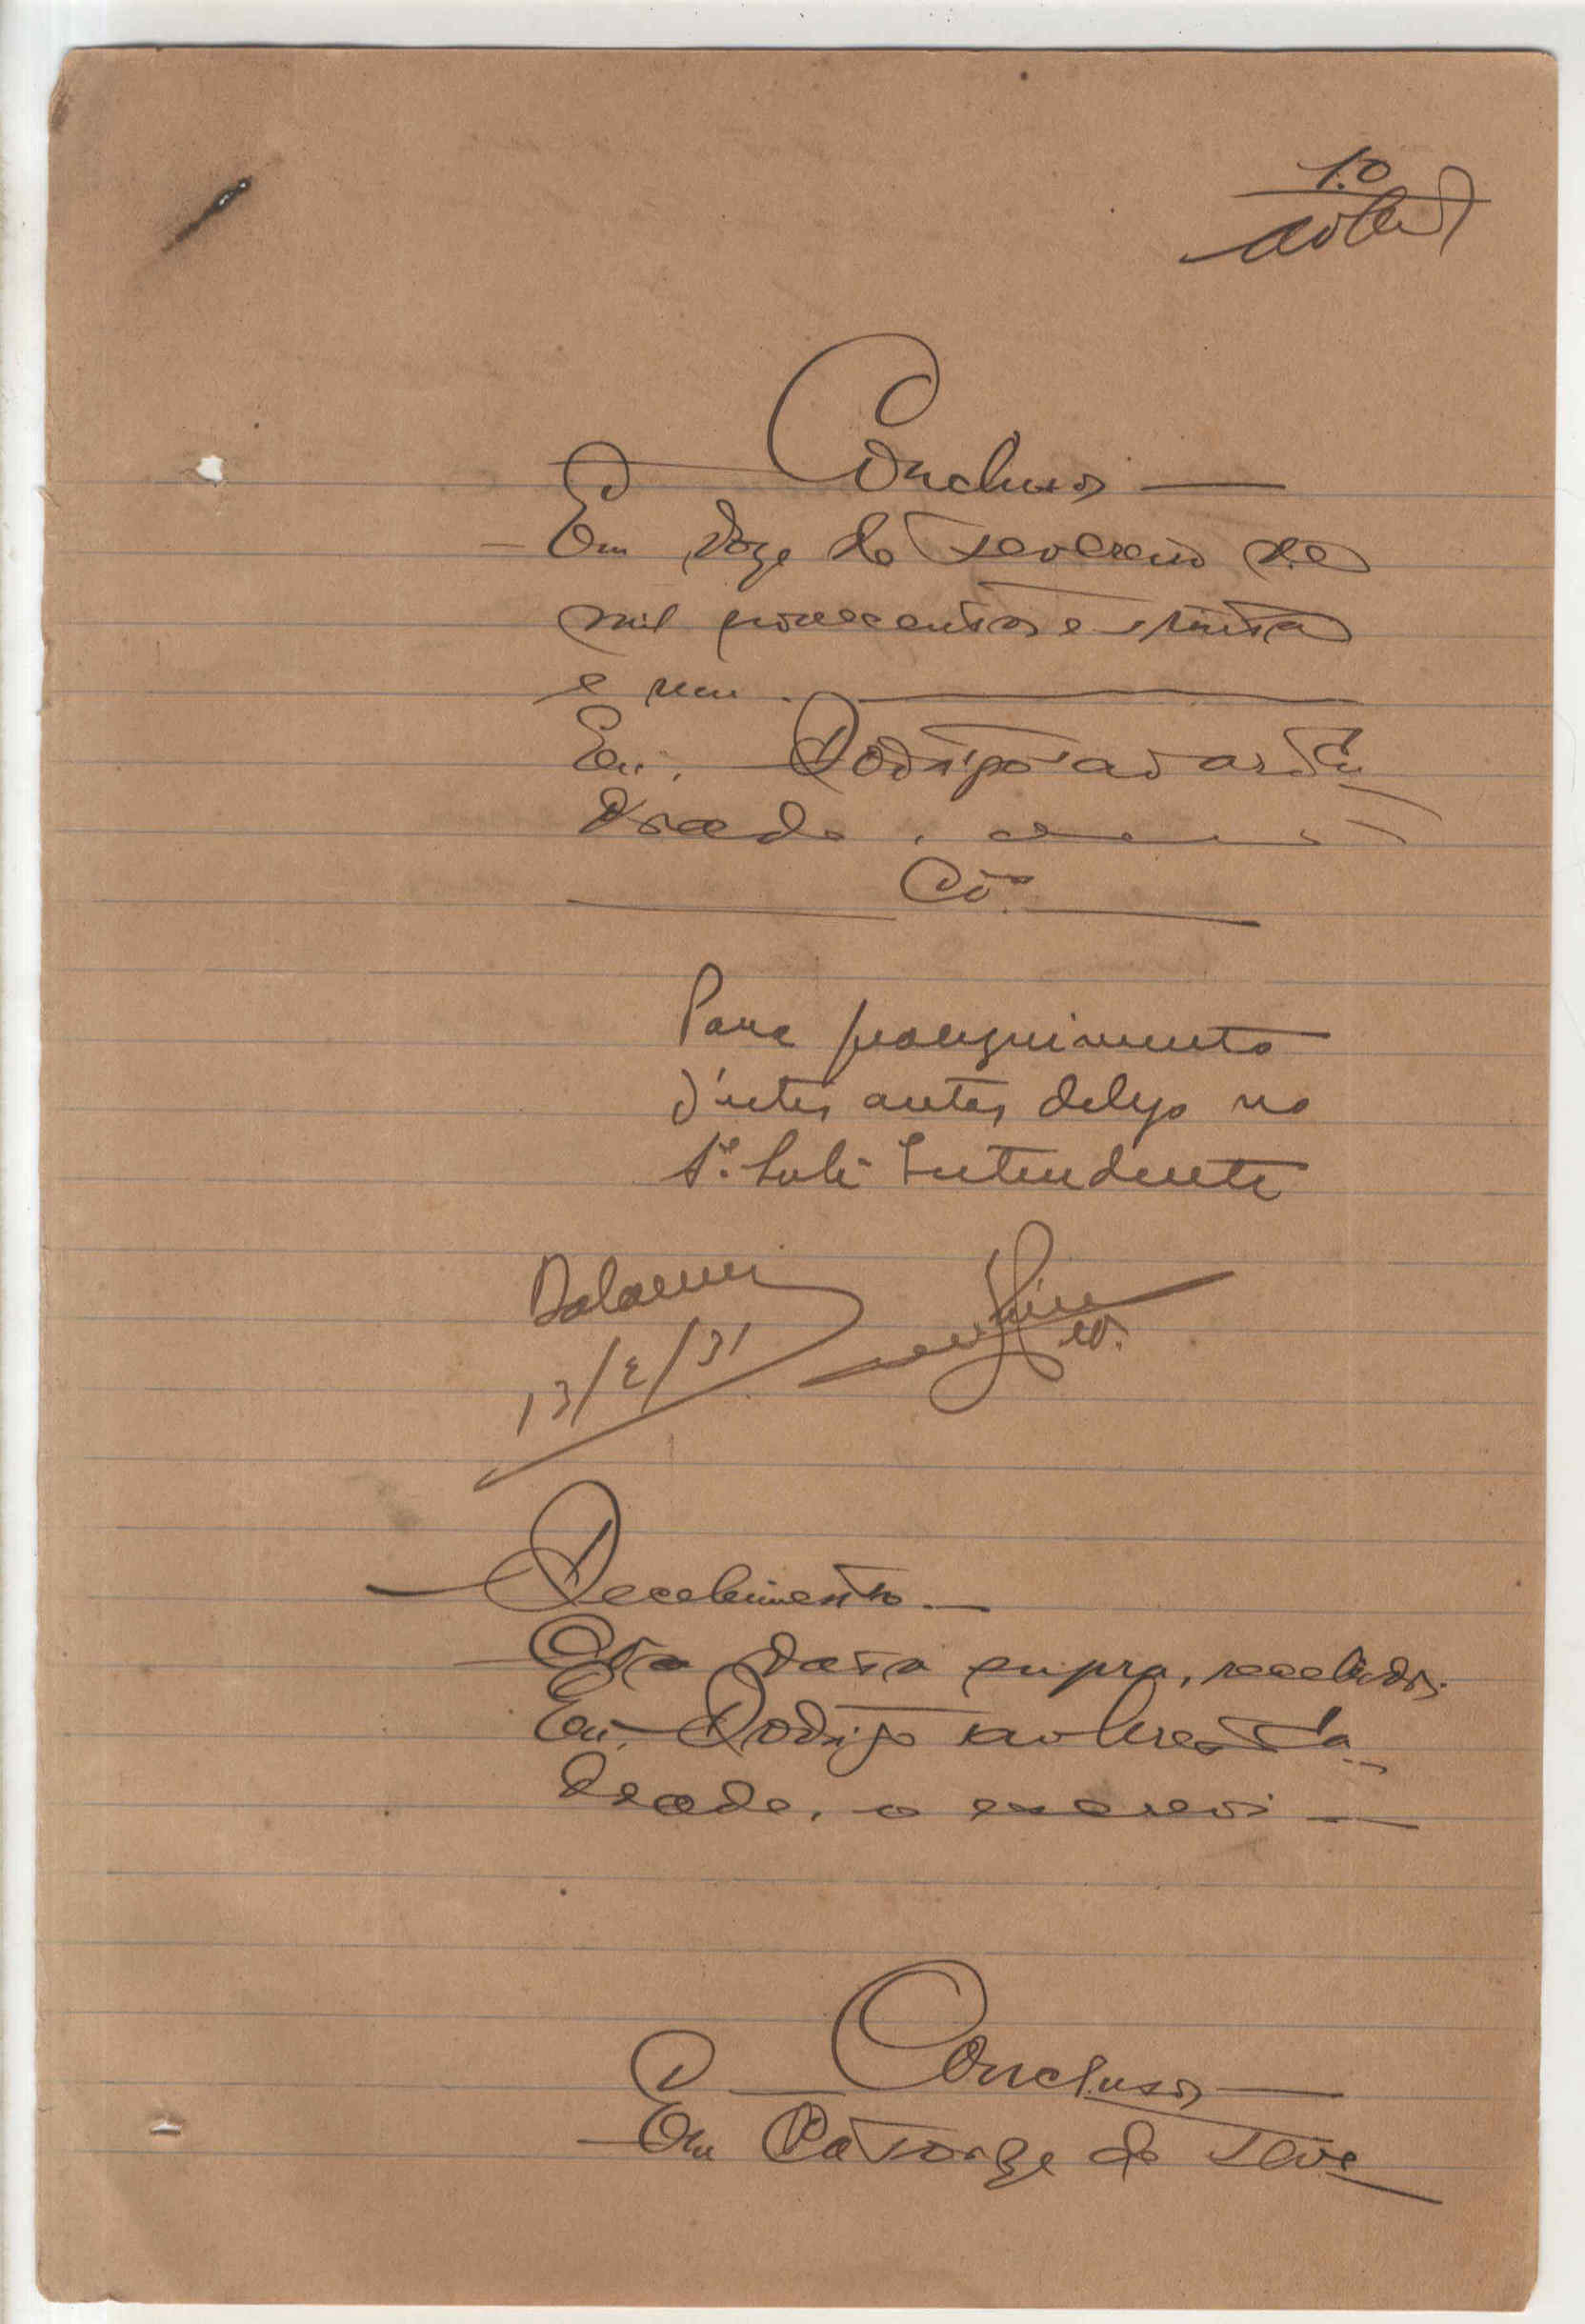 10
Conclusos
Em doze de Fevereiro de
mil novecentos e trinta
e um.
Eu, Rodrigo
drade,
Cos.
Para proseguimento
d'estes autos delego no
Sr. Sub-Intendente
13/2/31
Recebimento
Na data supra, recebidos.
Eu, Rodrigo
drade, o escrevi
Conclusos
Em Catorze de Feve